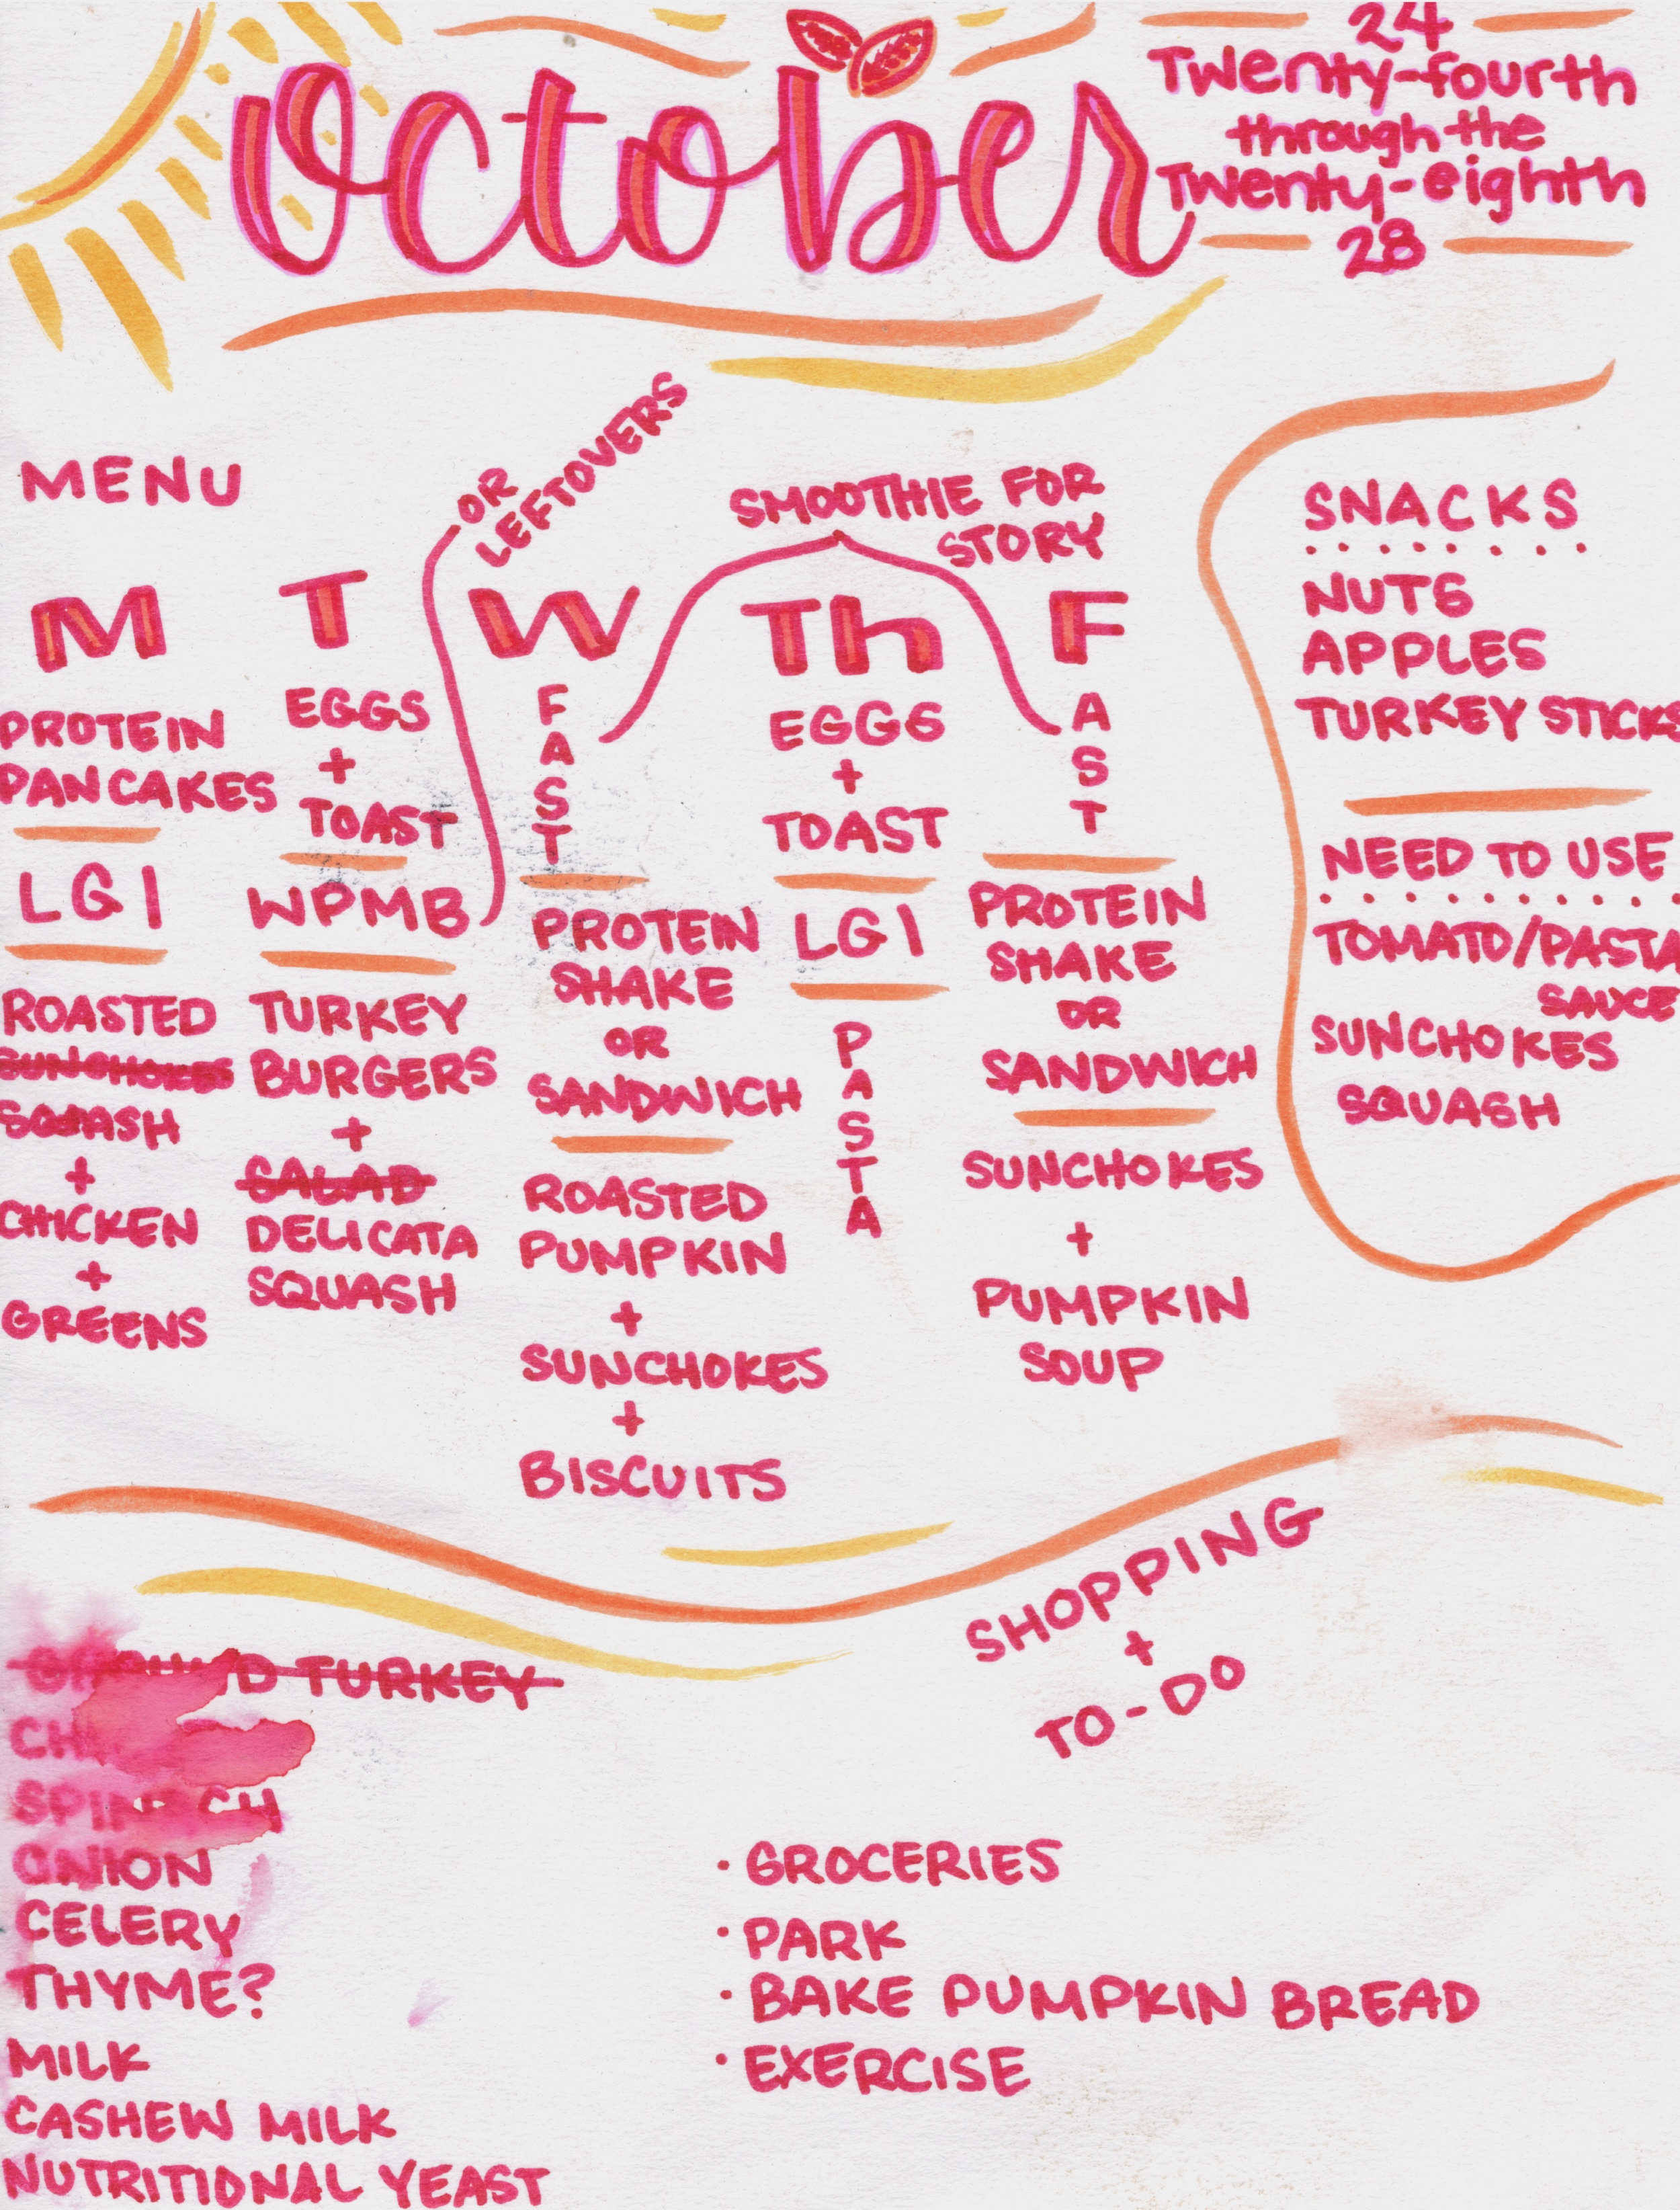 October
24
Twenty-fourth
through the
Twenty-eighth
28
MENU
OR
LEFTOVERS
SMOOTHIE FOR
STORY
M
PROTEIN
PANCAKES
LGI
ROASTED
SUNCHOKES
SQUASH
+
CHICKEN
+
GREENS
T
EGGS
+
TOAST
WPMB
TURKEY
BURGERS
+
SALAD
DELICATA
SQUASH
W
FAST
PROTEIN
SHAKE
OR
SANDWICH
ROASTED
PUMPKIN
+
SUNCHOKES
+
BISCUITS
Th
EGGS
+
TOAST
LGI
PASTA
F
FAST
PROTEIN
SHAKE
OR
SANDWICH
SUNCHOKES
+
PUMPKIN
SOUP
SNACKS
NUTS
APPLES
TURKEY STICKS
NEED TO USE
TOMATO/PASTA
SAUCE
SUNCHOKES
SQUASH
SHOPPING
+
TO-DO
GROUND TURKEY
SPINACH
ONION
CELERY
THYME?
MILK
CASHEW MILK
NUTRITIONAL YEAST
· GROCERIES
· PARK
· BAKE PUMPKIN BREAD
· EXERCISE